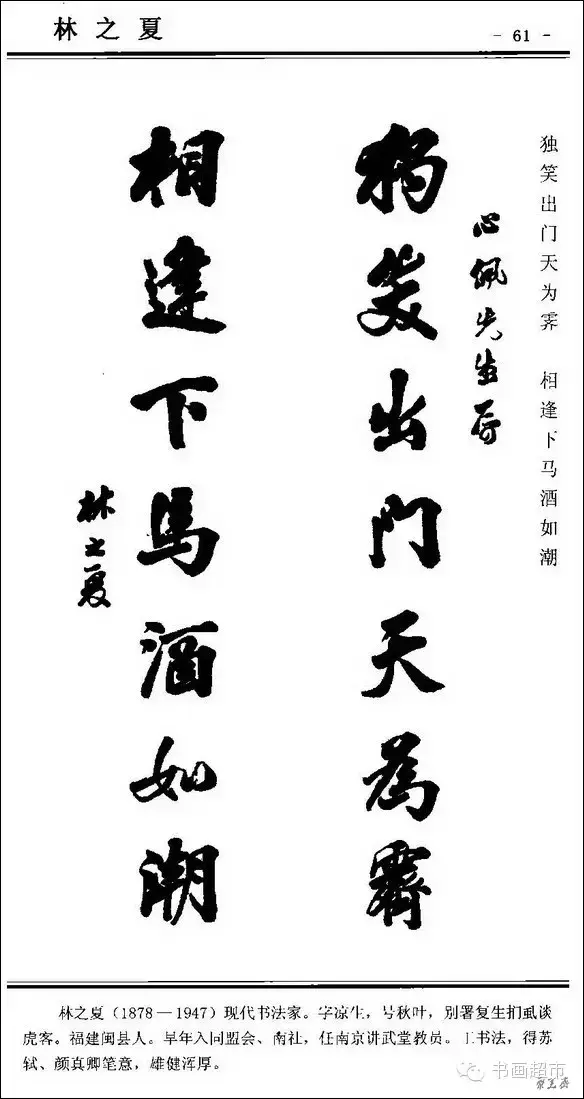 林之夏
- 61 -
独笑出门天为霁 相逢下马酒如潮
心佩先生属
獨笑出門天為霽
相逢下馬酒如潮
林之夏
林之夏(1878—1947)现代书法家。字凉生,号秋叶,别署复生扪虱谈
虎客。福建闽县人。早年入同盟会、南社,任南京讲武堂教员。工书法,得苏
轼、颜真卿笔意,雄健浑厚。
书画超市